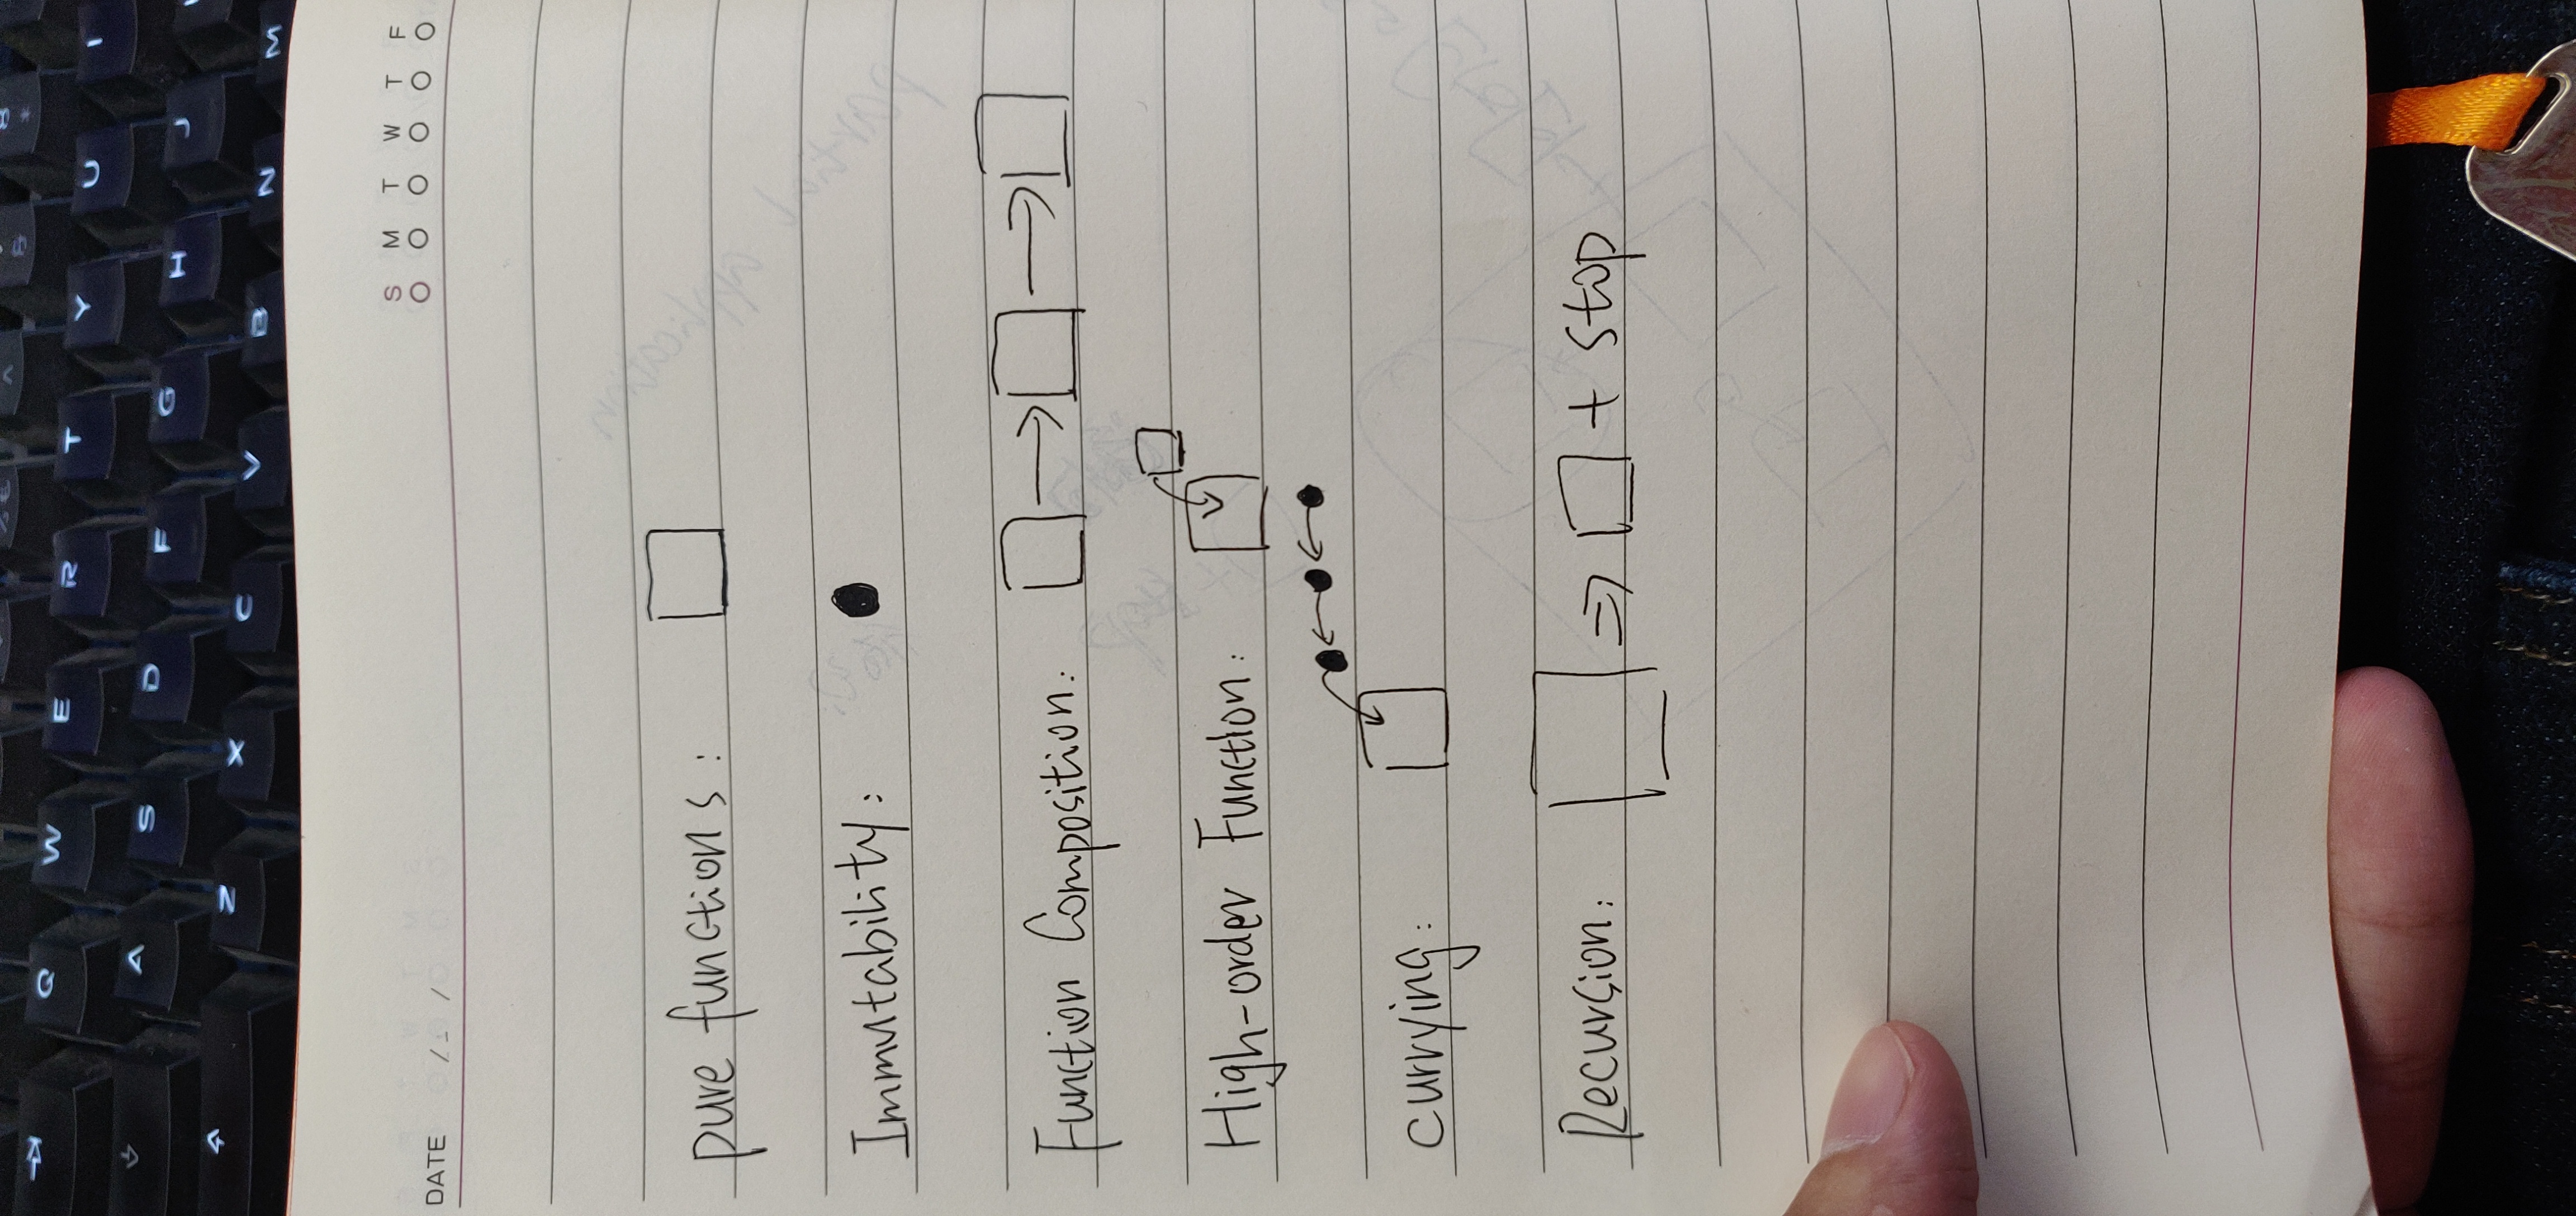 Q W E R T Y U I
A S D F G H J
Z X C V B N M
S M T W T F
DATE / /
pure functions:
Immutability:
Function Composition:
High-order Function:
currying:
Recursion: => + stop